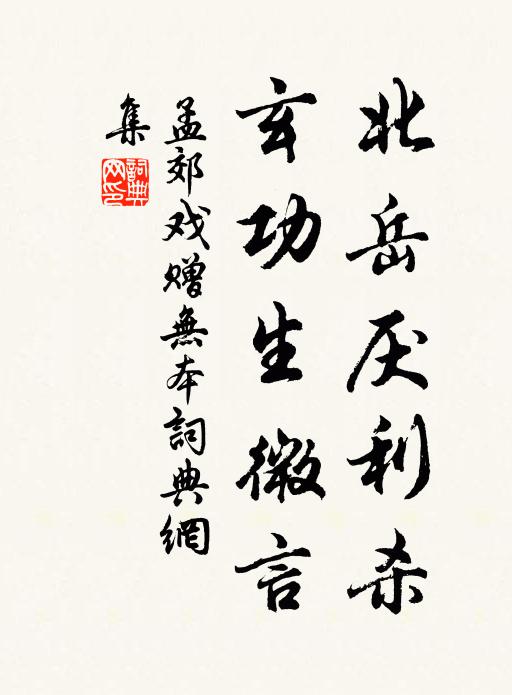 北岳厌利杀
玄功生微言
孟郊戏赠無本詞典網
集
詞典
网印